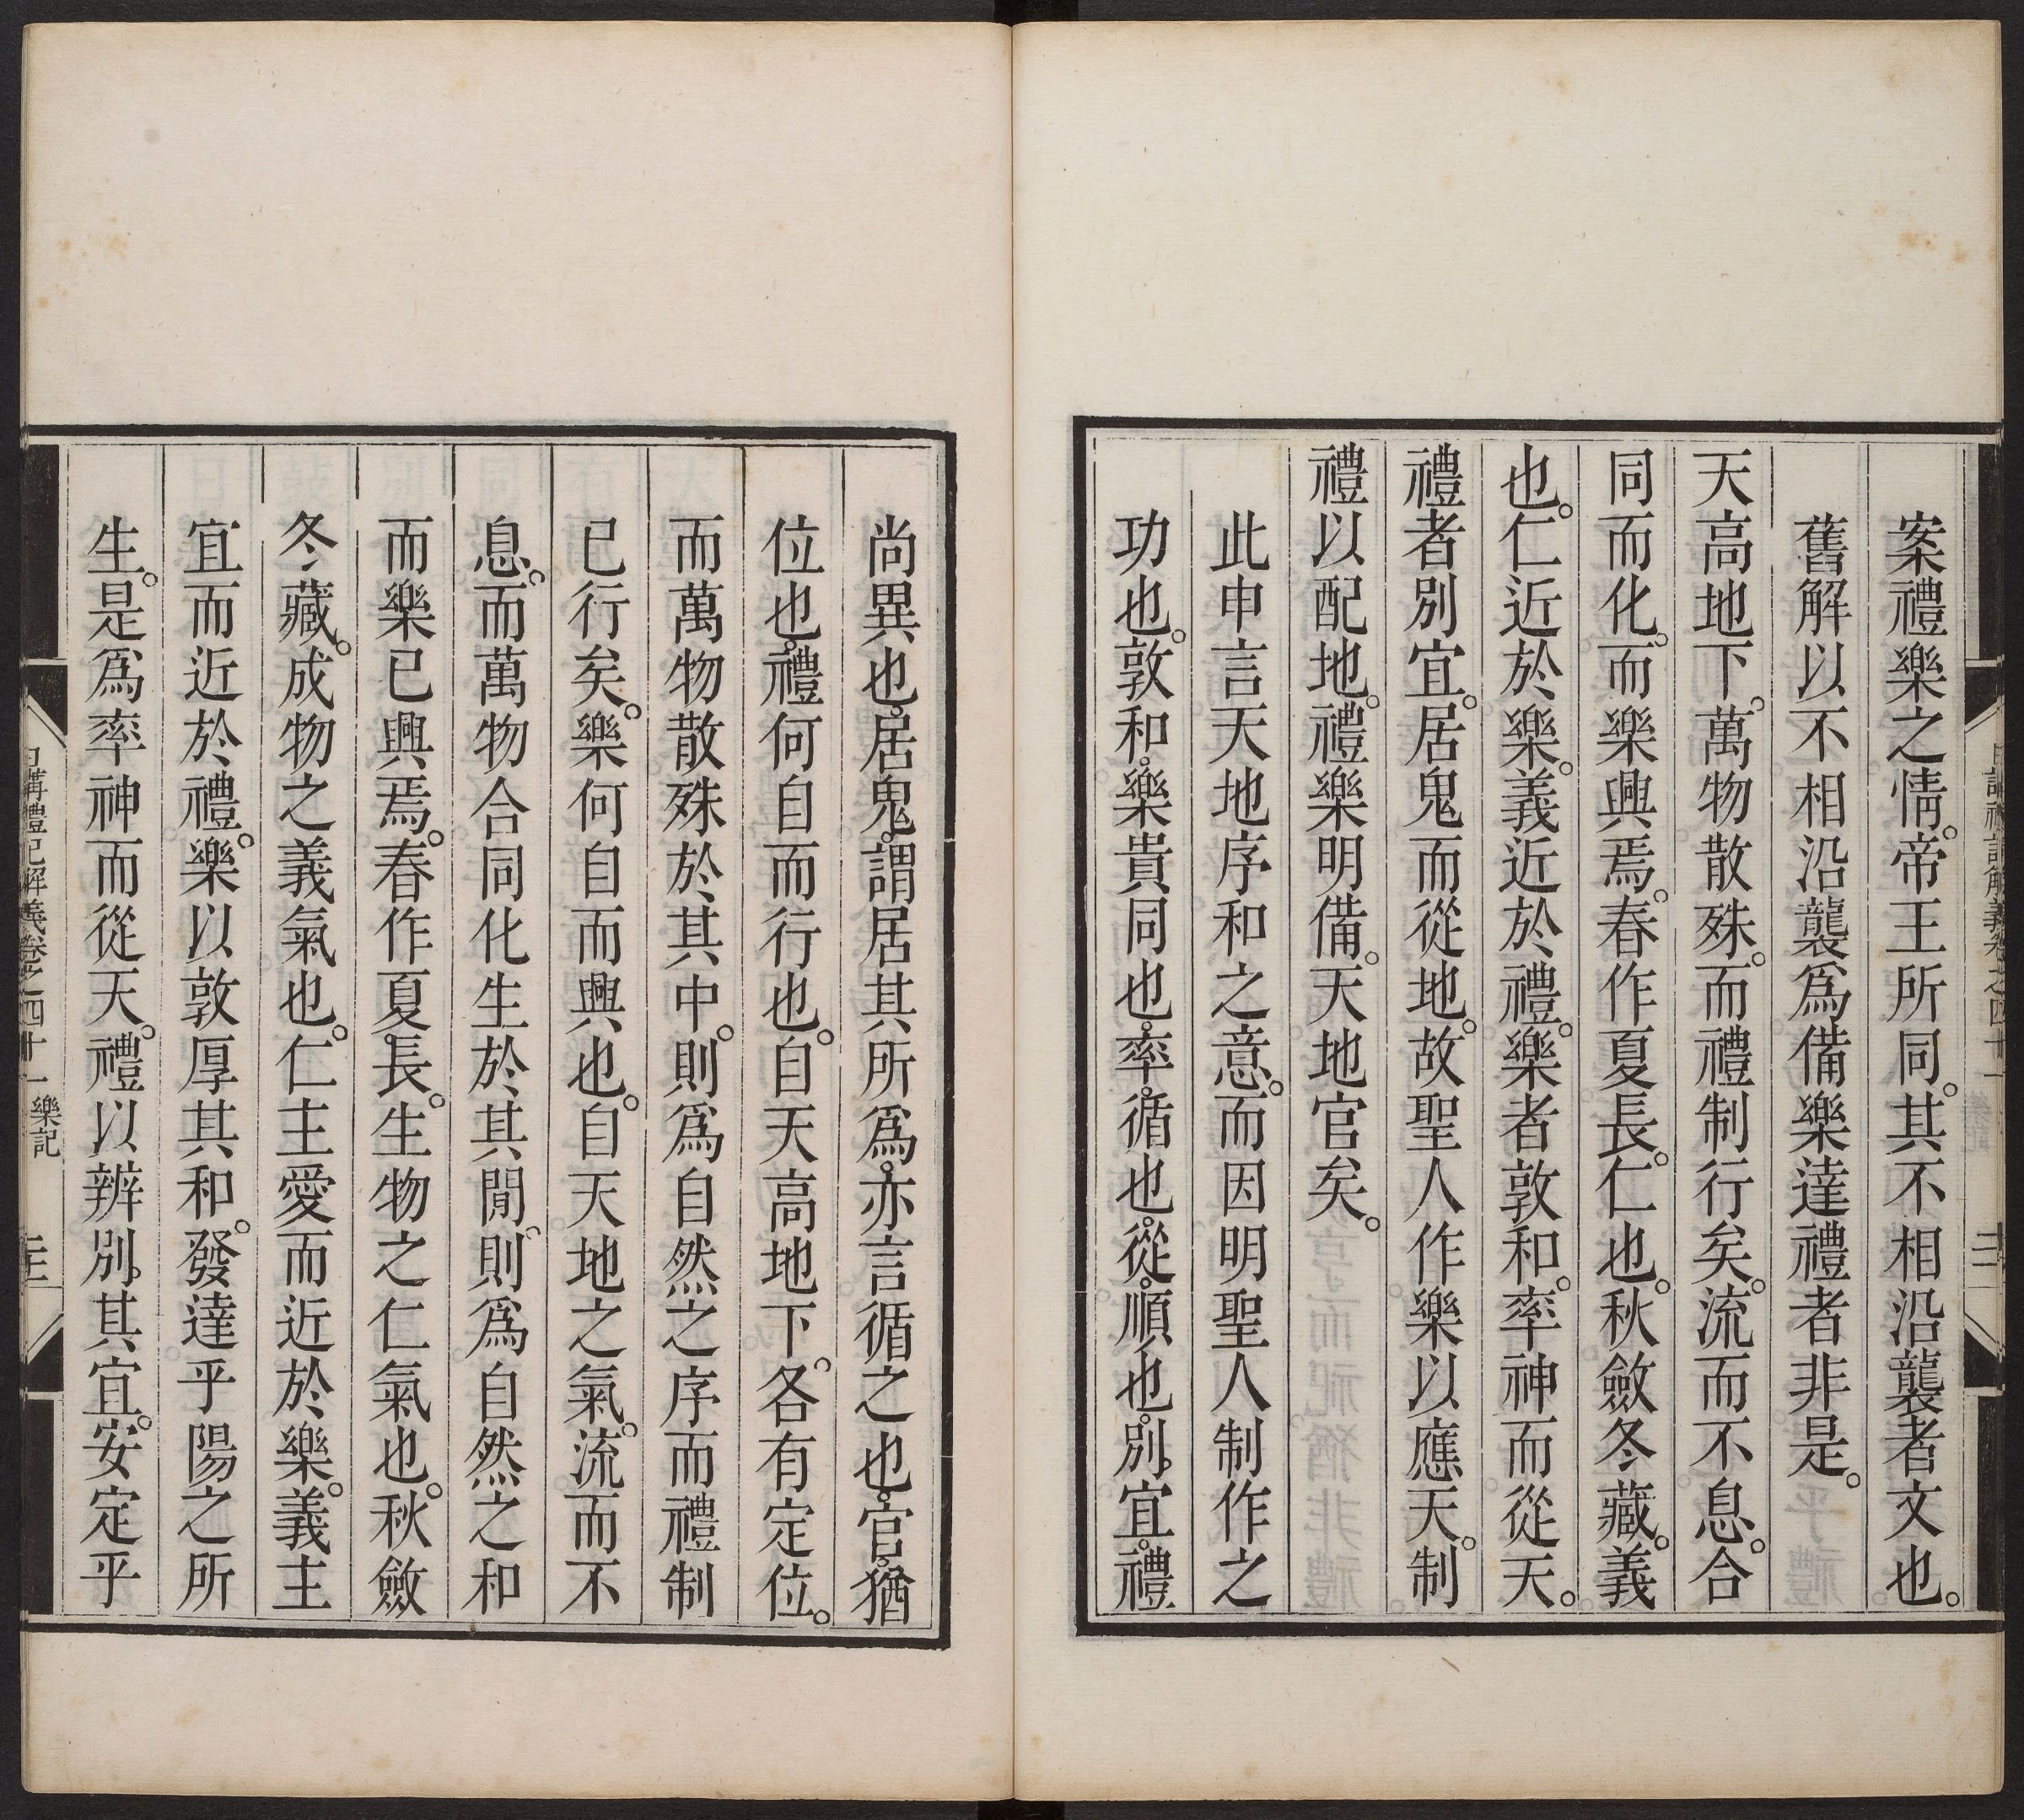 案禮樂之情。帝王所同。其不相沿襲者文也。
舊解以不相沿襲爲備樂達禮者非是。
天高地下。萬物散殊。而禮制行矣。流而不息。合
同而化。而樂興焉。春作夏長。仁也。秋斂冬藏。義
也。仁近於樂。義近於禮。樂者敦和。率神而從天。
禮者別宜。居鬼而從地。故聖人作樂以應天。制
禮以配地。禮樂明備。天地官矣。
此申言天地序和之意。而因明聖人制作之
功也。敦和。樂貴同也。率。循也。從。順也。別宜。禮
尚異也。居鬼。謂居其所爲。亦言循之也。官。猶
位也。禮何自而行也。自天高地下。各有定位。
而萬物散殊於其中。則爲自然之序而禮制
已行矣。樂何自而興也。自天地之氣。流而不
息。而萬物合同化生於其閒。則爲自然之和
而樂已興焉。春作夏長。生物之仁氣也。秋斂
冬藏。成物之義氣也。仁主愛而近於樂。義主
宜而近於禮。樂以敦厚其和。發達乎陽之所
生。是爲率神而從天。禮以辨別其宜。安定乎
日講禮記解義卷之四十一 樂記